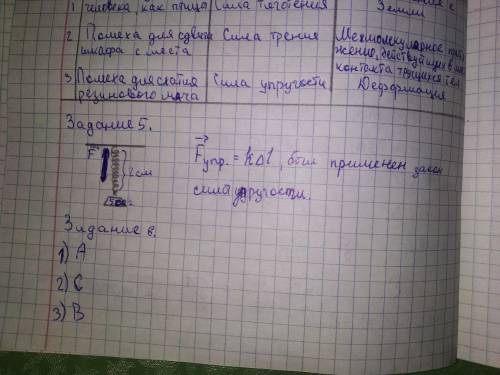 1 человека, как птица Сила тяготения Земли
2 Помеха для сдвига Сила трения
шкафа с места
контакта трущихся тел
3 Помеха для сжатия Сила упругости Деформация
резинового мяча
Задание 5.
F 2 см
Fупр. = kΔl, был применен закон
сила упругости.
Задание 6.
1) А
2) С
3) В